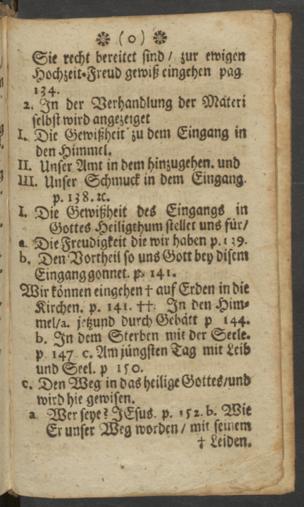 ❁ (o) ❁
Sie recht bereitet sind / zur ewigen
Hochzeit-Freud gewiß eingehen pag
134.
2. In der Verhandlung der Materi
selbst wird angezeiget
I. Die Gewißheit zu dem Eingang in
den Himmel.
II. Unser Amt in dem hinzugehen. und
III. Unser Schmuck in dem Eingang.
p. 138. ꝛc.
I. Die Gewißheit des Eingangs in
Gottes Heiligthum stellet uns für/
a. Die Freudigkeit die wir haben p. 139.
b. Den Vortheil so uns Gott bey disem
Eingang gonnet. p. 141.
Wir können eingehen † auf Erden in die
Kirchen. p. 141. ††. In den Him-
mel/a. jetzund durch Gebätt p 144.
b. In dem Sterben mit der Seele.
p. 147 c. Am jüngsten Tag mit Leib
und Seel. p 150.
c. Den Weg in das heilige Gottes/und
wird hie gewisen.
a Wer seye? JEsus. p. 152. b. Wie
Er unser Weg worden / mit seinem
† Leiden.